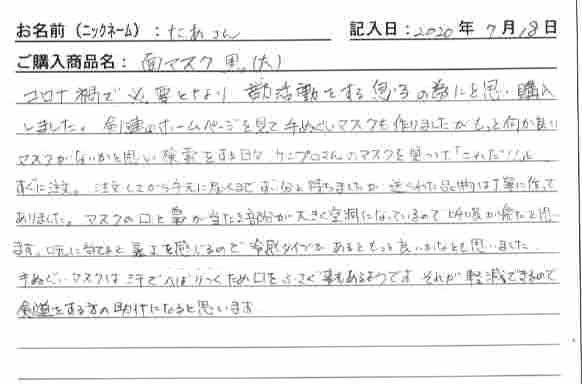 お名前(ニックネーム):たあさん 記入日:2020年7月18日
ご購入商品名:面マスク 黒(大)
コロナ禍で必要となり 部活動をする息子の為にと思い購入
しました。剣連のホームページを見て手ぬぐいマスクも作りましたがもっと何か良い
マスクがないかと思い検索をする日々 ケンプロさんのマスクを見つけ「これだ!!」と
すぐに注文。注文してから手元に届くまでずい分と待ちましたが 送られた品物は丁寧に作って
ありました。マスクの口と鼻が当たる部分が大きく空洞になっているので呼吸が楽だと思い
ます。口元に当てると暑さを感じるので冷感タイプが あるともっと良いかなとも思いました。
手ぬぐいマスクは汗でへばりつくため口をふさぐ事もあるようです それが軽減できるので
剣道をする方の助けになると思います